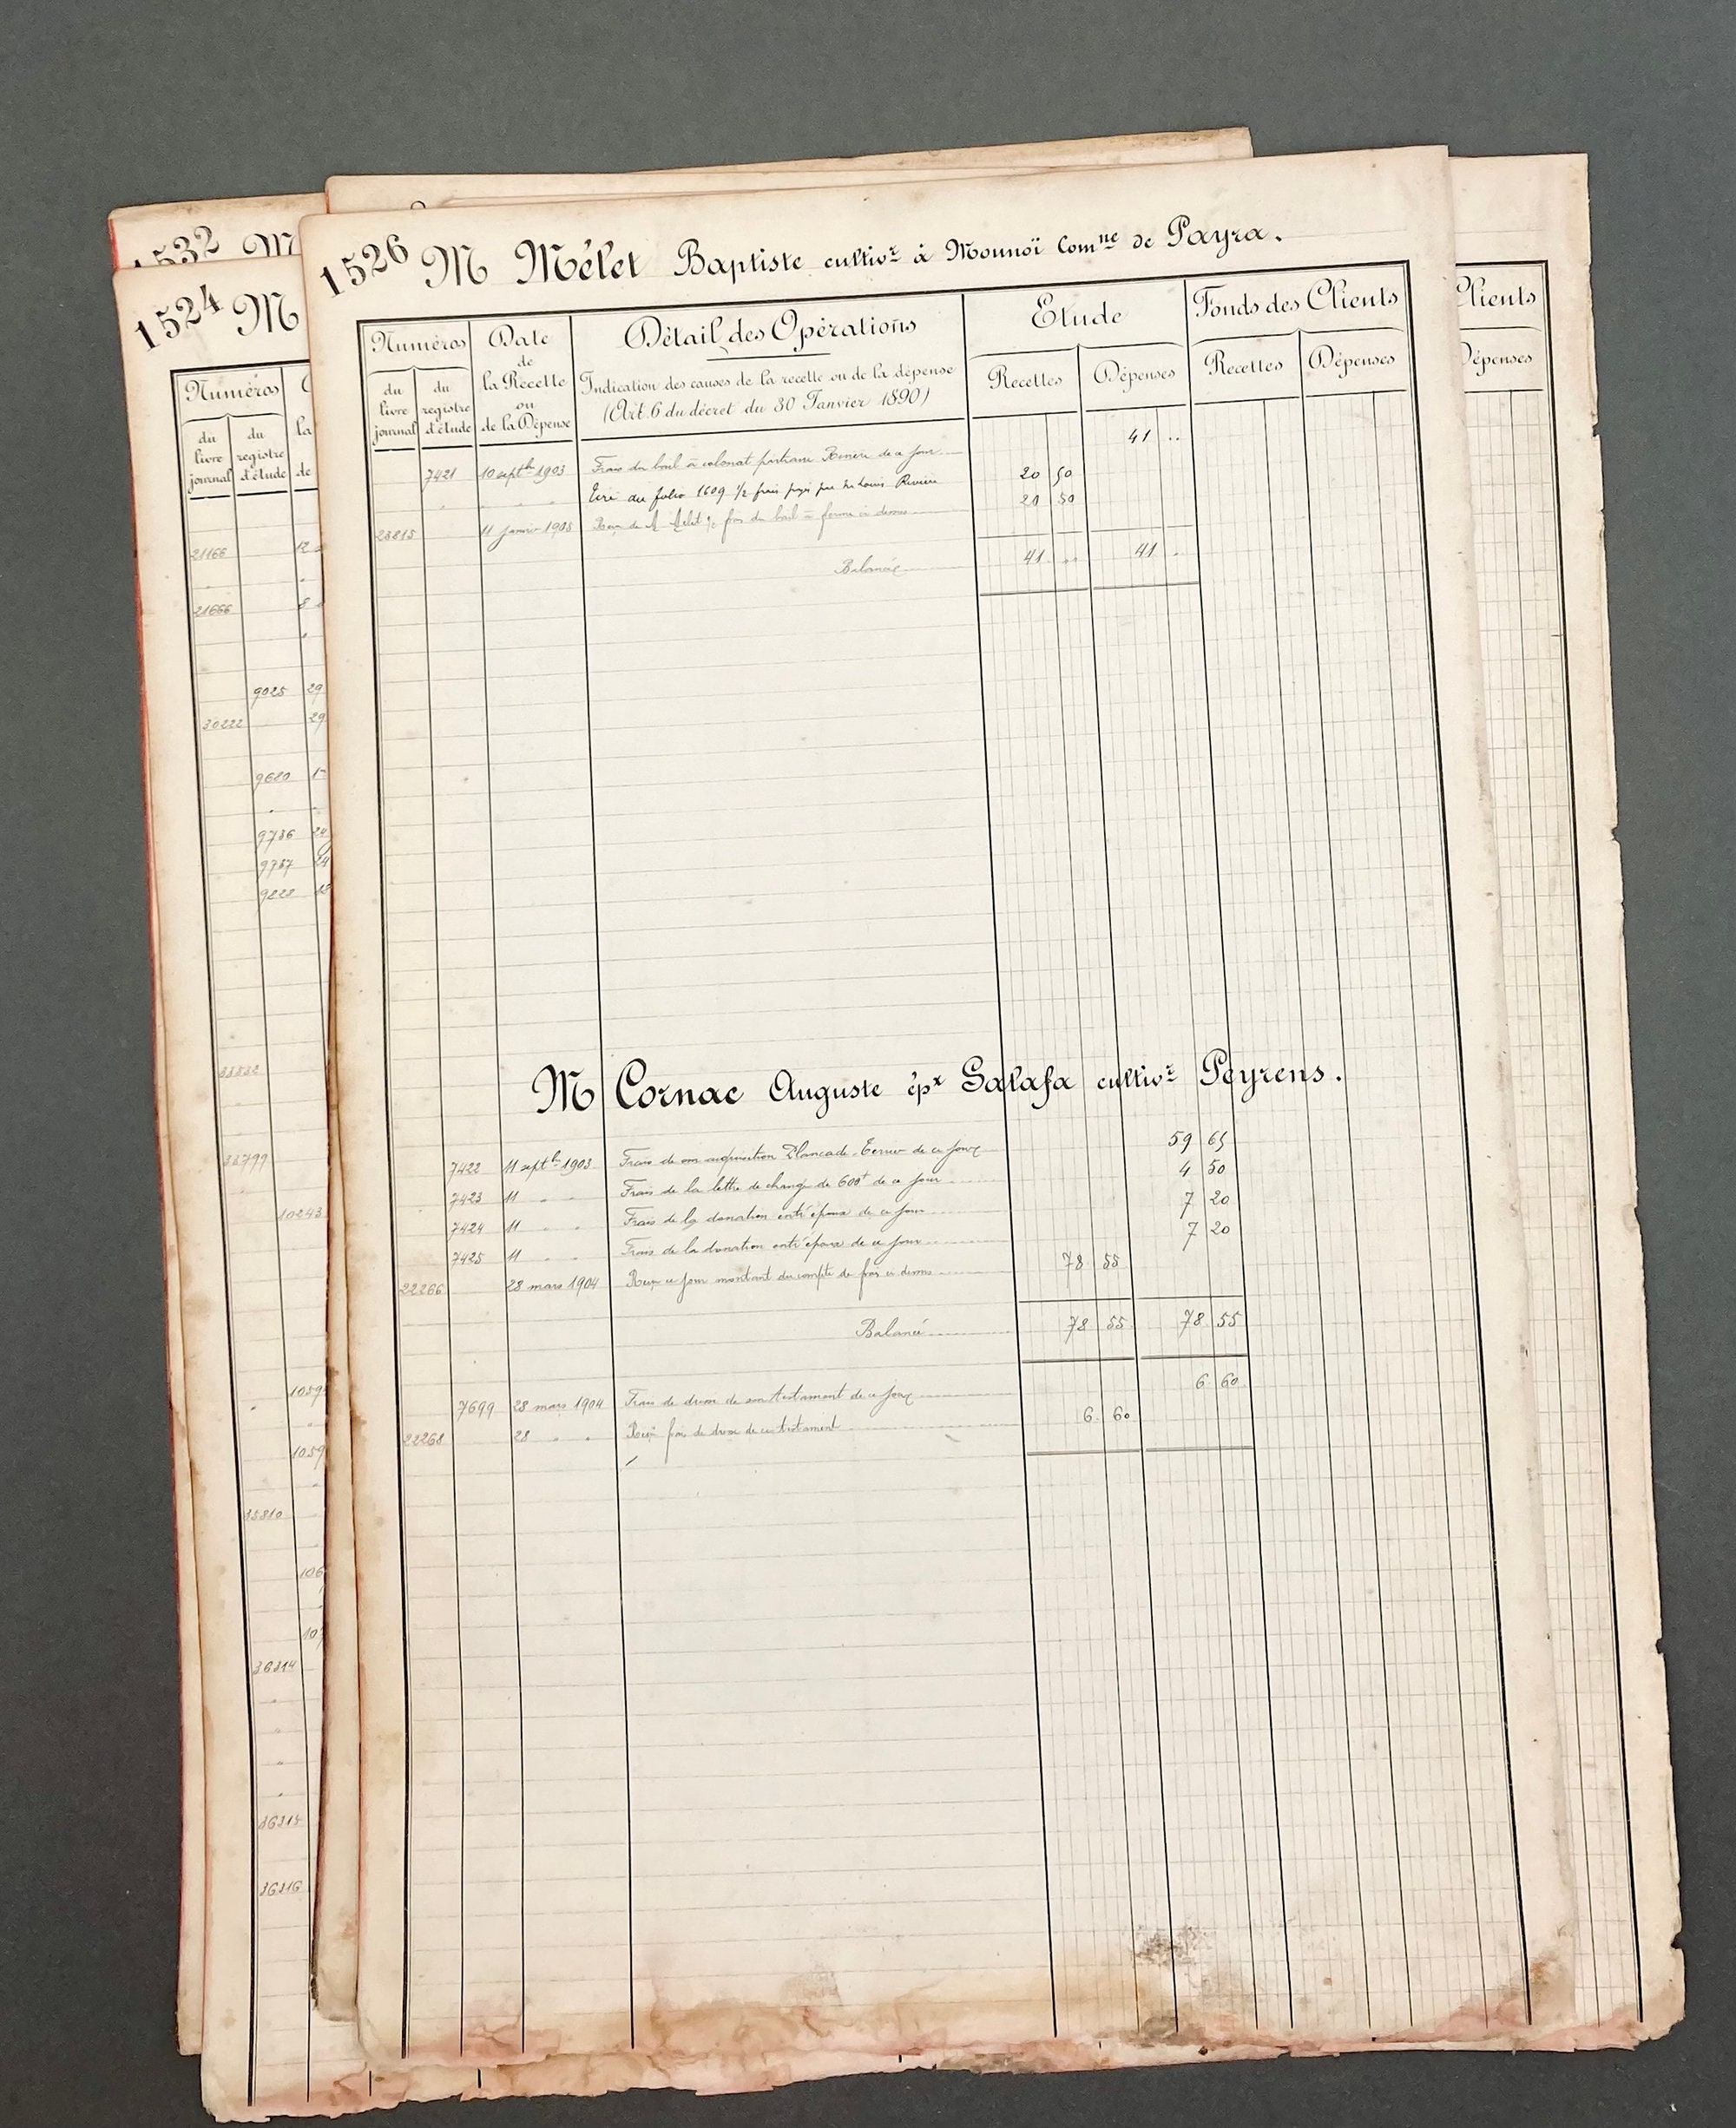 1532 M
1524 M
Numéros
du livre journal
du registre d'étude
la
de
21166 12
21666 8
9025 29
30222 29
9620 1
9736 24
9757 24
9222
33799
10243
1059
1059
35810
106
107
36314
36315
36316
1526 M Mélet Baptiste cultivr à Mounoï Comne de Payra.
Numéros
du livre journal
du registre d'étude
Date de la Recette ou de la Dépense
Détail des Opérations
Indication des causes de la recette ou de la dépense
(Art. 6 du décret du 30 Janvier 1890)
Etude
Recettes Dépenses
Fonds des Clients
Recettes Dépenses
7421 10 septb 1903 Frais du bail à colonat partiaire de ce jour 41 ..
Tiré du folio 1609 1/2 frais payés par Mr Louis Rivière 20 50
23815 11 Janvier 1905 Reçu de M. Mélet 1/2 frais du bail à ferme ci dessus 20 50
Balancé 41 .. 41 ..
M Cornac Auguste épx Salafa cultivr Peyrens.
7422 11 septb 1903 Frais de son acquisition Plancade de ce jour 59 65
7423 11 " " Frais de la lettre de change de 600f de ce jour 4 50
7424 11 " " Frais de la donation entr'époux de ce jour 7 20
7425 11 " " Frais de la donation entr'époux de ce jour 7 20
22266 28 mars 1904 Reçu ce jour montant du compte de frais ci dessus 78 55
Balancé 78 55 78 55
7699 28 mars 1904 Frais de dresse de son testament de ce jour 6 60
22268 28 " " Reçu frais de dresse de ce testament 6 60
Clients
Dépenses